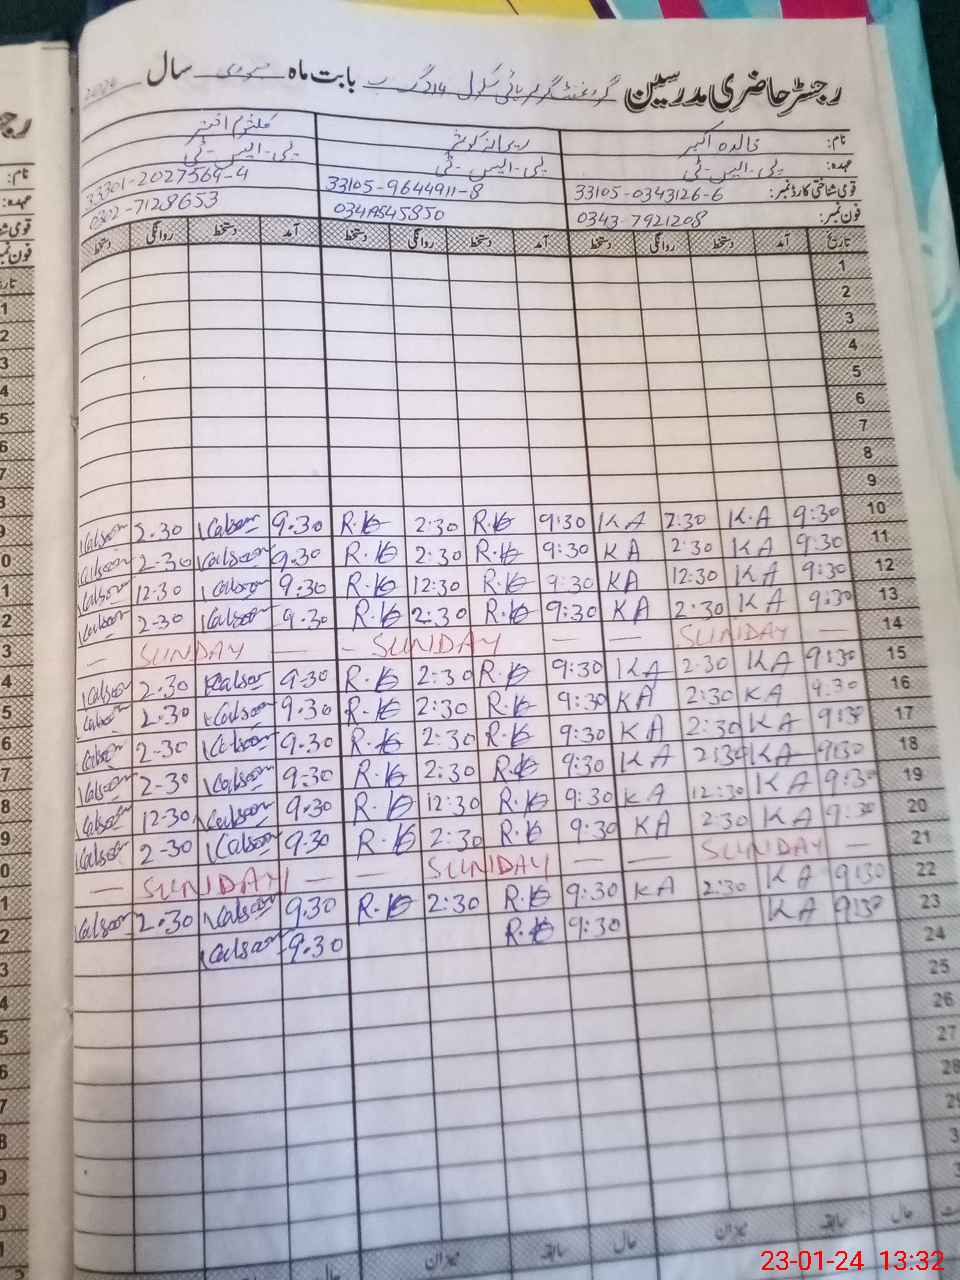 رجسٹر حاضری مدرسین گورنمنٹ گرلز ہائی سکول 214 گ ب بابت ماہ جنوری سال 2024
نام: خالدہ اکبر ریحانہ کوثر کلثوم اختر
عہدہ: پی-ایس-ٹی پی-ایس-ٹی پی-ایس-ٹی
قومی شناختی کارڈ نمبر: 33105-0343126-6 33105-9644911-8 33301-2027564-4
فون نمبر: 0343-7921208 0302-7128653
تاریخ آمد دستخط روانگی دستخط آمد دستخط روانگی دستخط آمد دستخط روانگی دستخط
1
2
3
4
5
6
7
8
9
10 9:30 K.A 2:30 KA 9:30 R.K 2:30 R.K 9.30 Kalsoom 2.30 Kalsoom
11 9:30 KA 2:30 KA 9:30 R.K 2:30 R.K 9.30 Kalsoom 2-30 Kalsoom
12 9:30 KA 12:30 KA 9:30 R.K 12:30 R.K 9.30 Kalsoom 12-30 Kalsoom
13 9:30 KA 2:30 KA 9:30 R.K 2:30 R.K 9.30 Kalsoom 2-30 Kalsoom
14 — SUNDAY — — SUNDAY - — SUNDAY —
15 9:30 KA 2:30 KA 9:30 R.K 2:30 R.K 9.30 Kalsoom 2.30 Kalsoom
16 9:30 KA 2:30 KA 9:30 R.K 2:30 R.K 9.30 Kalsoom 2.30 Kalsoom
17 9:30 KA 2:30 KA 9:30 R.K 2:30 R.K 9.30 Kalsoom 2-30 Kalsoom
18 9:30 KA 2:30 KA 9:30 R.K 2:30 R.K 9-30 Kalsoom 2-30 Kalsoom
19 9:30 KA 12:30 KA 9:30 R.K 12:30 R.K 9.30 Kalsoom 12-30 Kalsoom
20 9:30 KA 2:30 KA 9:30 R.K 2:30 R.K 9.30 Kalsoom 2-30 Kalsoom
21 — SUNDAY — — SUNDAY — — SUNDAY —
22 9:30 KA 2:30 KA 9:30 R.K 2:30 R.K 9.30 Kalsoom 2.30 Kalsoom
23 9:30 KA 9:30 R.K 9.30 Kalsoom
24
25
26
27
28
29
حال سابقہ میزان حال سابقہ میزان حال
23-01-24 13:32